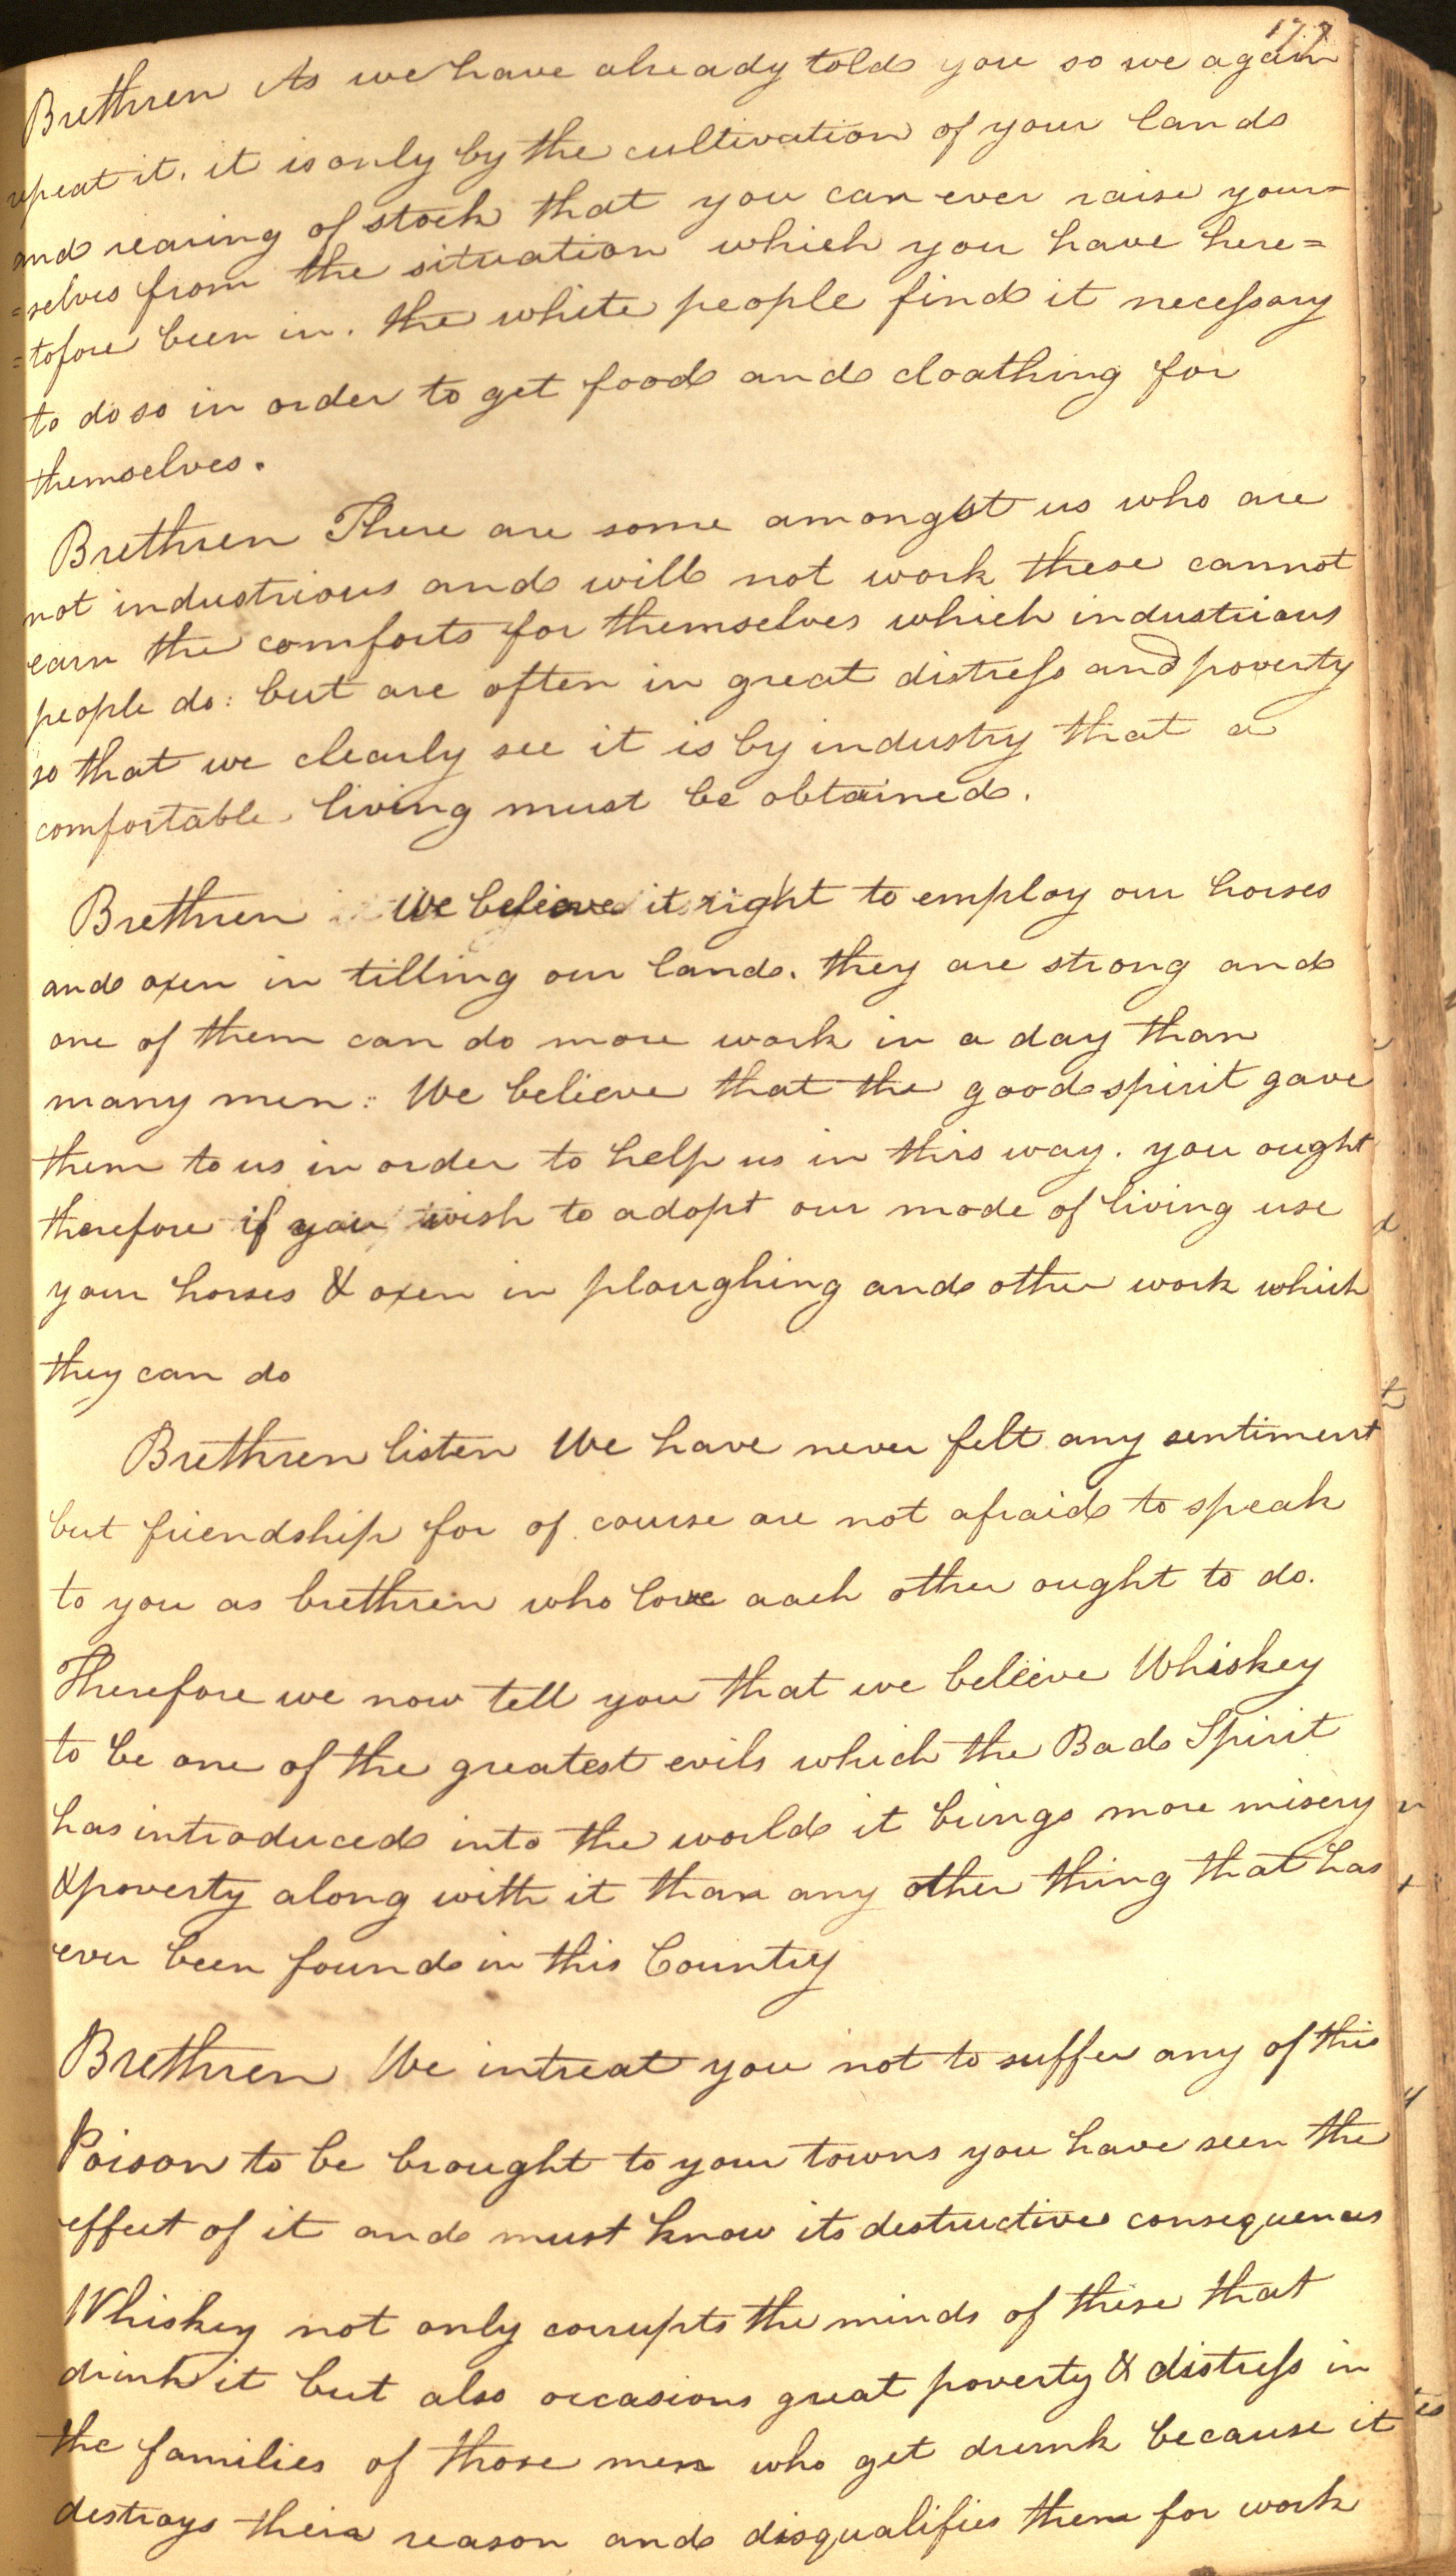 177
Brethren As we have already told you so we again
repeat it. it is only by the cultivation of your lands
and rearing of stock that you can ever raise your=
=selves from the situation which you have here=
=tofore been in. the white people find it necessary
to do so in order to get food and cloathing for
themselves.
Brethren There are some amongst us who are
not industrious and will not work these cannot
earn the comforts for themselves which industrious
people do: but are often in great distress and poverty
so that we clearly see it is by industry that a
comfortable living must be obtained.
Brethren We believe it right to employ our horses
and oxen in tilling our land. they are strong and
one of them can do more work in a day than
many men: We believe that the good spirit gave
them to us in order to help us in this way. you ought
therefore if you wish to adopt our mode of living use
your horses & oxen in ploughing and other work which
they can do
Brethren listen We have never felt any sentiment
but friendship for of course are not afraid to speak
to you as brethren who love aach other ought to do.
Therefore we now tell you that we beleive Whiskey
to be one of the greatest evils which the Bad Spirit
has introduced into the world it brings more misery
& poverty along with it than any other thing that has
ever been found in this Country
Brethren We intreat you not to suffer any of this
Poison to be brought to your towns you have seen the
effect of it and must know its destructive consequences
Whiskey not only corrupts the minds of these that
drink it but also occasions great poverty & distress in
the families of those men who get drunk because it
destroys their reason and disqualifies them for work